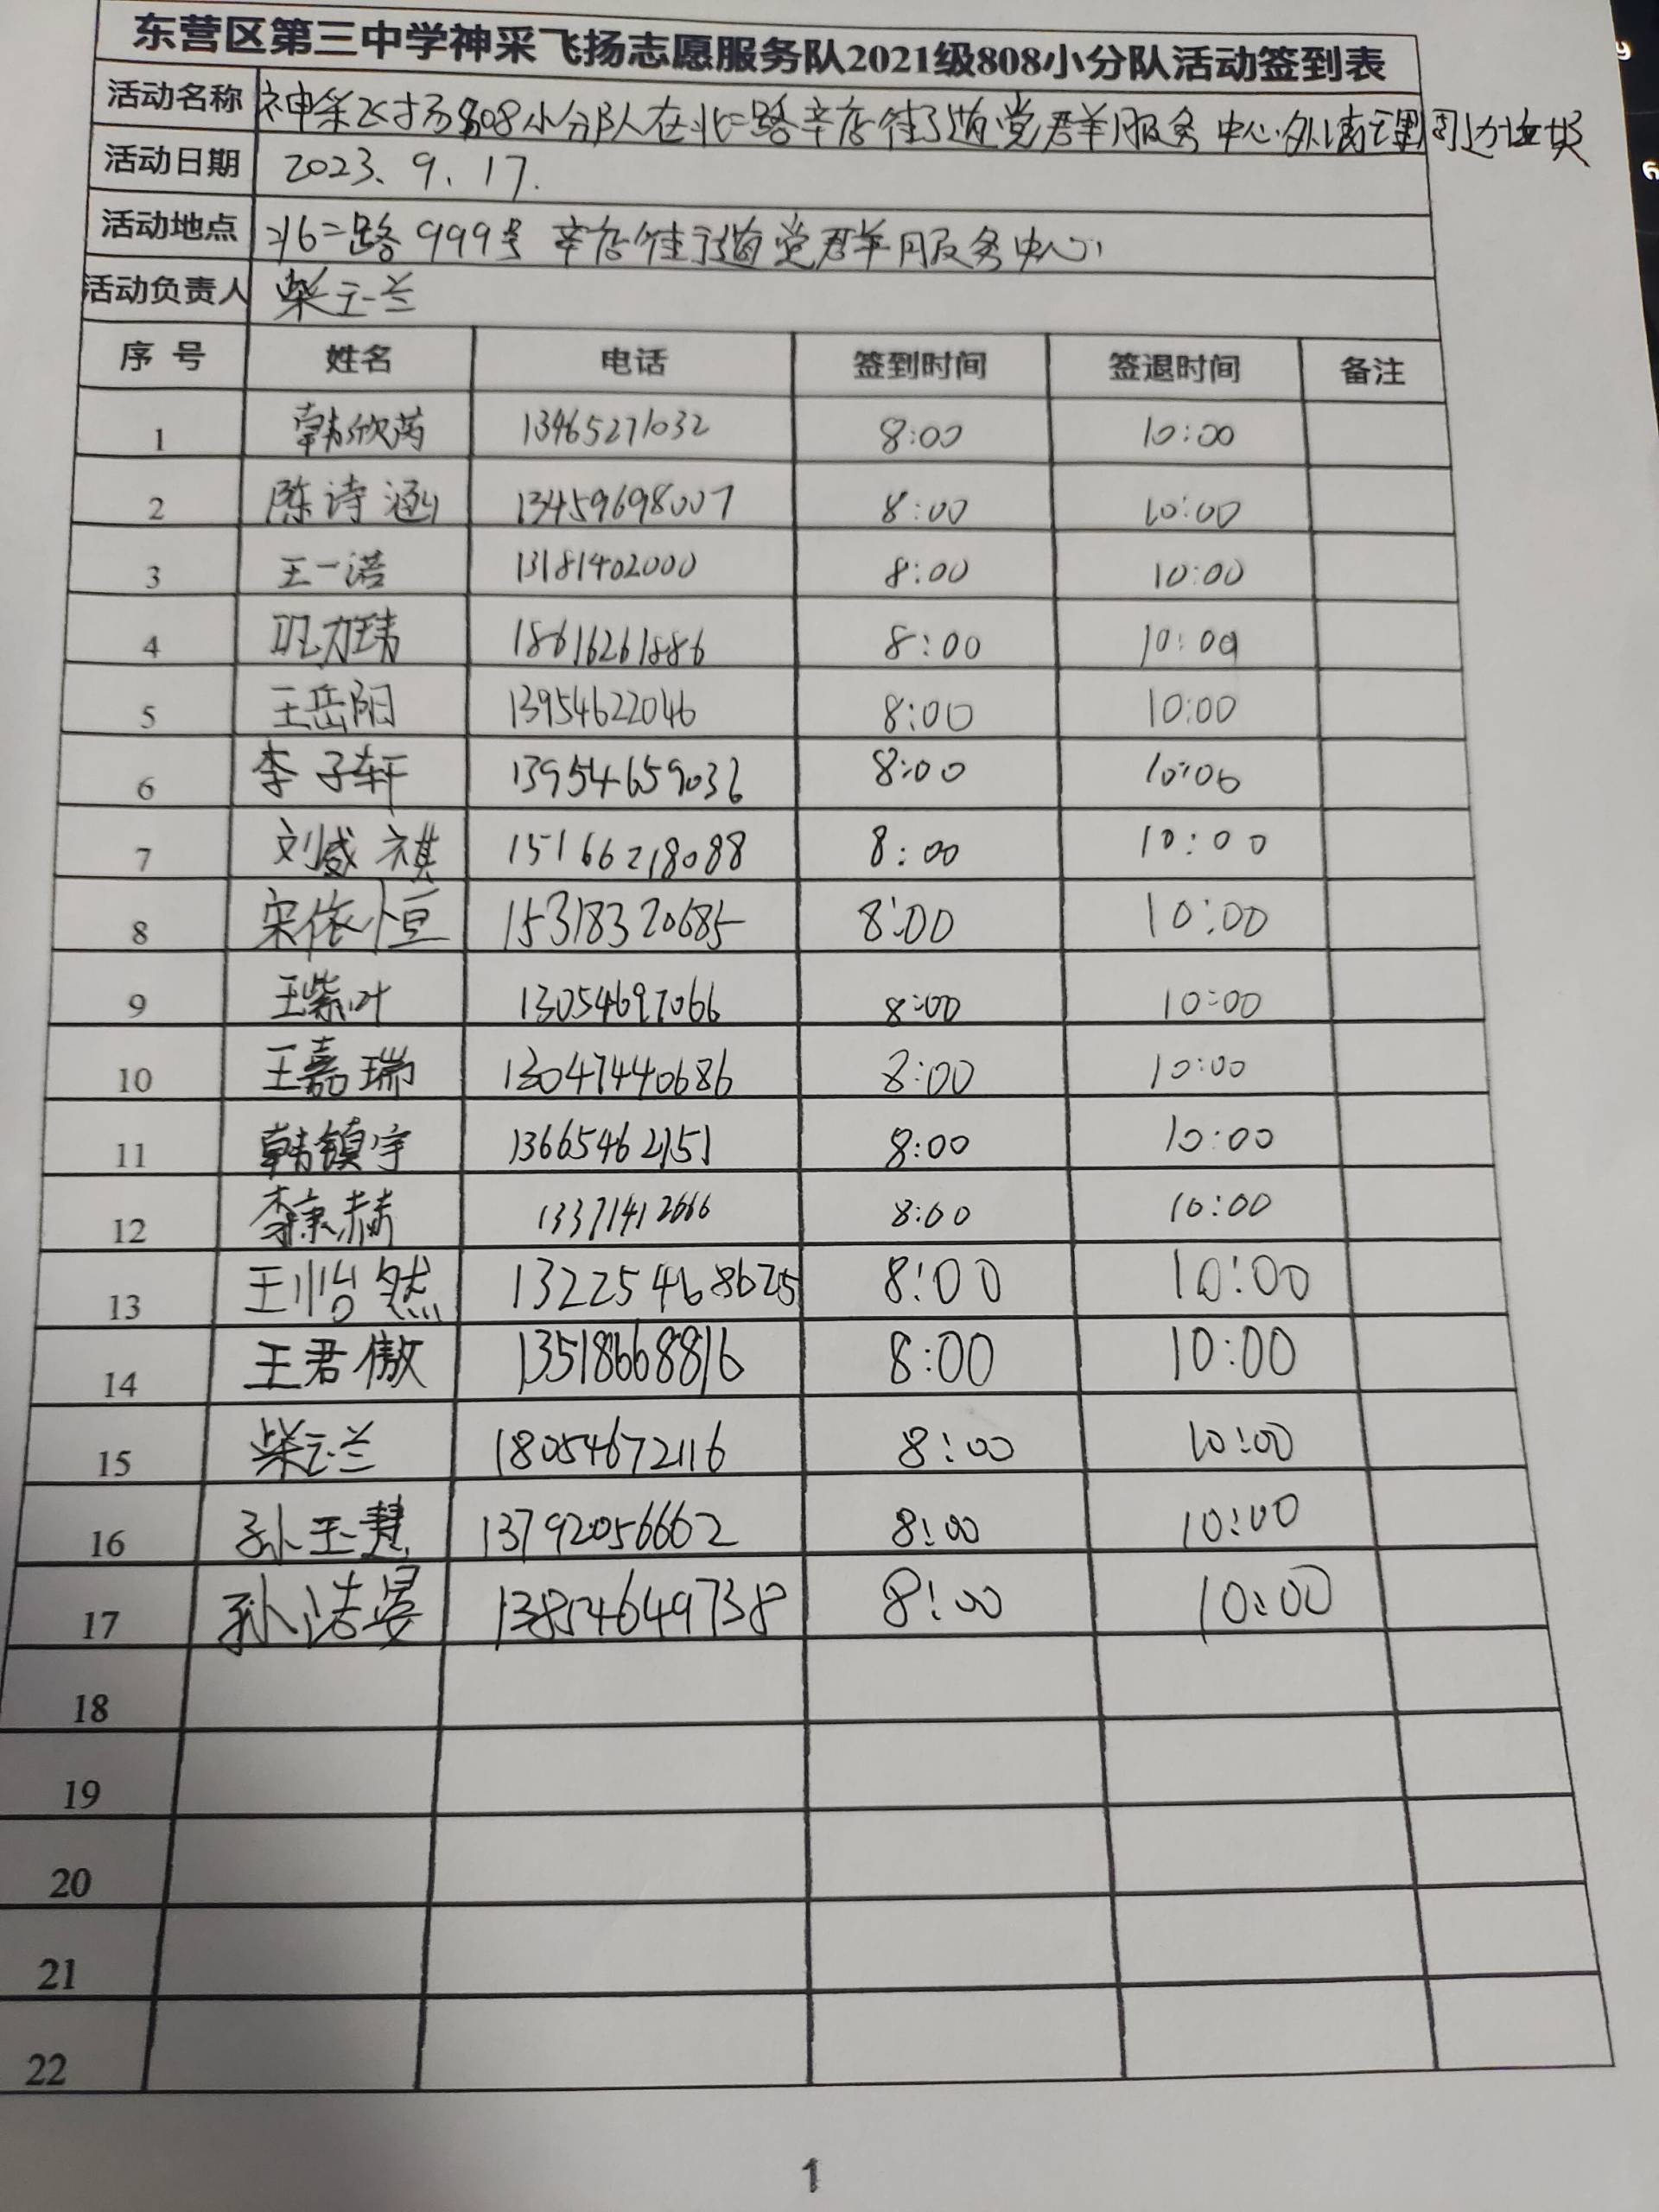 东营区第三中学神采飞扬志愿服务队2021级808小分队活动签到表
活动名称 神采飞扬808小分队在北二路辛店街道党群服务中心外清理周边垃圾
活动日期 2023、9、17.
活动地点 北二路999号 辛店街道党群服务中心
活动负责人 柴玉兰
序号 姓名 电话 签到时间 签退时间 备注
1 韩欣芮 13465271032 8:00 10:00
2 陈诗涵 13459698007 8:00 10:00
3 王一诺 13181402000 8:00 10:00
4 18616261886 8:00 10:00
5 王岳阳 13954622046 8:00 10:00
6 李子轩 13954659036 8:00 10:00
7 刘盛祺 15166218088 8:00 10:00
8 宋依恒 15318320685 8:00 10:00
9 王紫叶 13054697066 8:00 10:00
10 王嘉瑞 13047440686 8:00 10:00
11 韩镇宇 13665462151 8:00 10:00
12 李康赫 13371412666 8:00 10:00
13 王怡然 13225468625 8:00 10:00
14 王君傲 13518668816 8:00 10:00
15 柴玉兰 18054672116 8:00 10:00
16 孙玉慧 13792056662 8:00 10:00
17 孙浩晏 13854649738 8:00 10:00
18
19
20
21
22
1